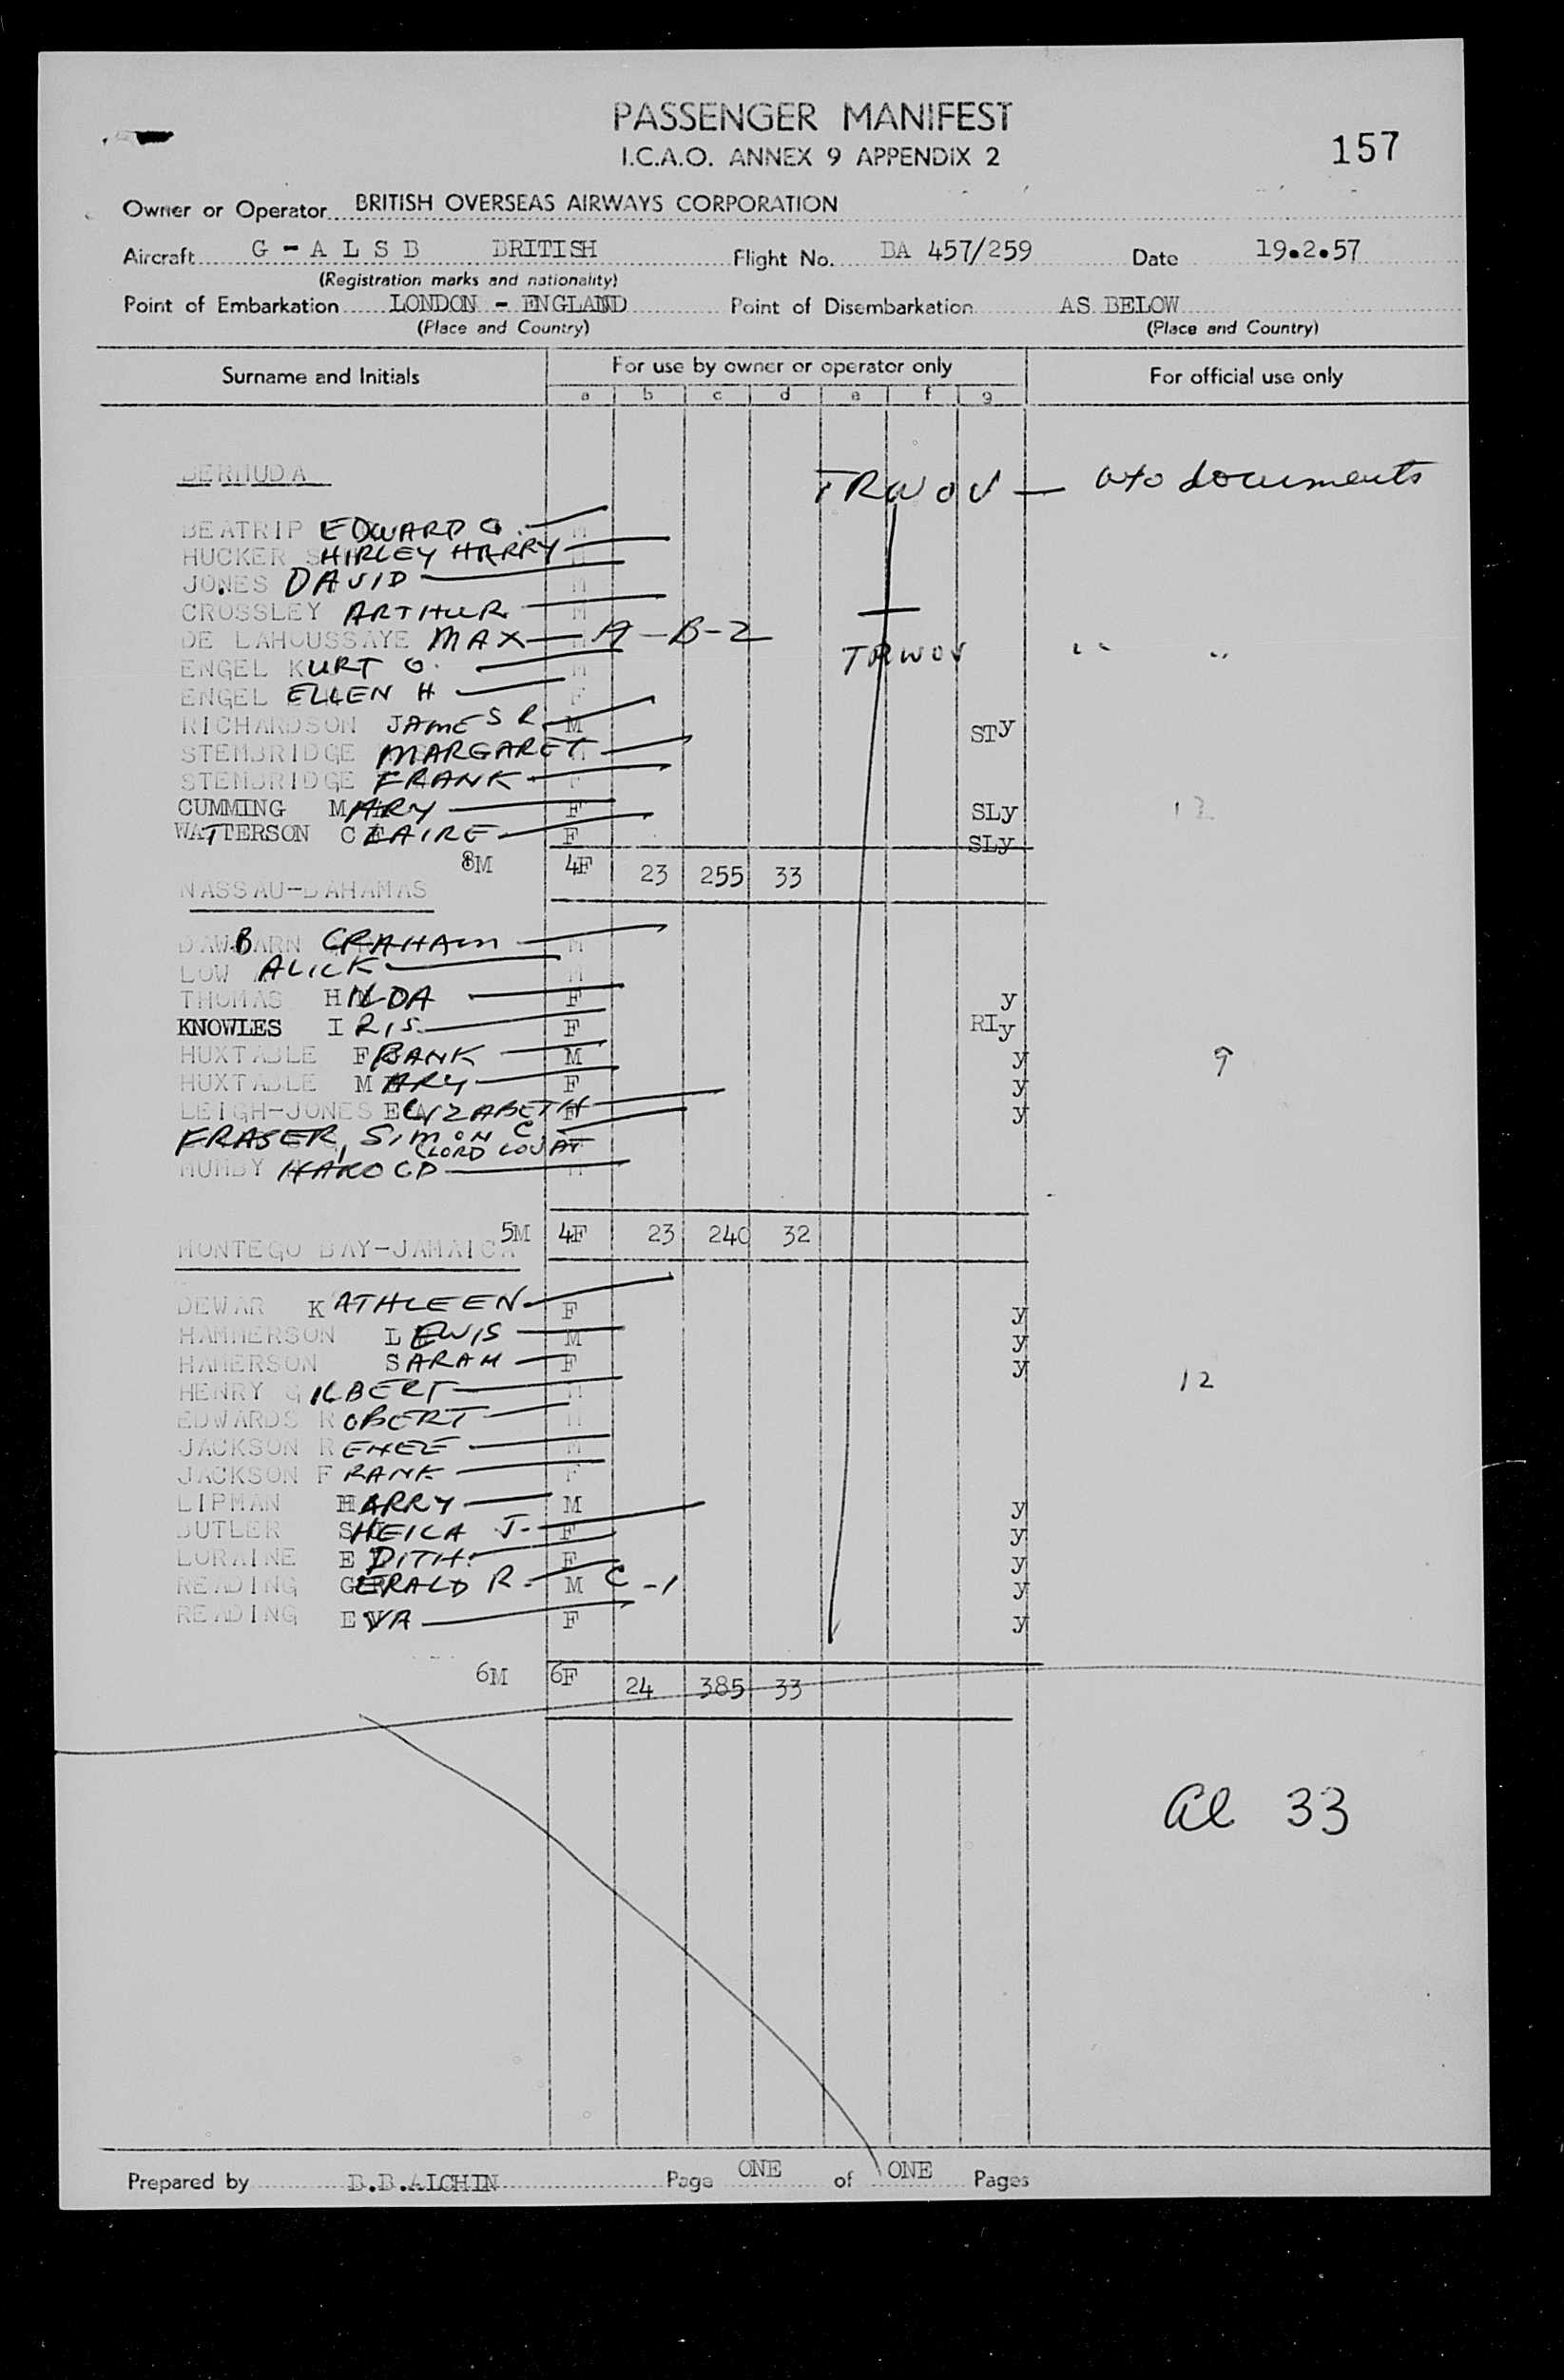 PASSENGER MANIFEST
I.C.A.O. ANNEX 9 APPENDIX 2
157
Owner or Operator BRITISH OVERSEAS AIRWAYS CORPORATION
Aircraft G - A L S B BRITISH Flight No. BA 457/259 Date 19.2.57
(Registration marks and nationality)
Point of Embarkation LONDON - ENGLAND Point of Disembarkation AS BELOW
(Place and Country) (Place and Country)
Surname and Initials For use by owner or operator only For official use only
a b c d e f g
BERMUDA TRWOV — w/o documents
BEATRIP EDWARD G. M
HUCKER SHIRLEY HARRY M
JONES DAVID M
CROSSLEY ARTHUR M
DE LAHOUSSAYE MAX — A-B-2
ENGEL KURT O. M TRWOV " "
ENGEL ELLEN H F
RICHARDSON JAMES R M STy
STEMBRIDGE MARGARET M
STEMBRIDGE FRANK F
CUMMING MARY F SLy 12
WATTERSON CLAIRE F SLy
8M 4F 23 255 33
NASSAU-BAHAMAS
DAWBARN GRAHAM M
LOW ALICK M
THOMAS HILDA F y
KNOWLES IRIS F RIy
HUXTABLE FRANK M y 9
HUXTABLE MARY F y
LEIGH-JONES ELIZABETH F y
FRASER, SIMON C
(LORD LOVAT
MUMBY HAROLD M
5M 4F 23 240 32
MONTEGO BAY-JAMAICA
DEWAR KATHLEEN F y
HAMMERSON LEWIS M y
HAMERSON SARAH F y
HENRY GILBERT M 12
EDWARDS ROBERT M
JACKSON RENEE M
JACKSON FRANK F
LIPMAN HARRY M y
BUTLER SHEILA J. F y
LORAINE EDITH F y
READING GERALD R. M C-1 y
READING EVA F y
6M 6F 24 385 33
al 33
Prepared by B.B.AICHIN Page ONE of ONE Pages